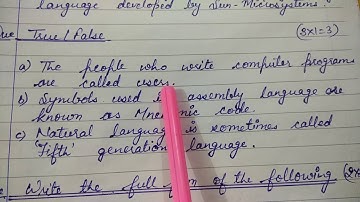 language developed by Sun-Microsystems
Que True/False (3x1=3)
a) The people who write computer programs
are called users.
b) Symbols used in assembly language are
known as Mnemonic code.
c) Natural language is sometimes called
'Fifth' generation language.
Write the full form of the following